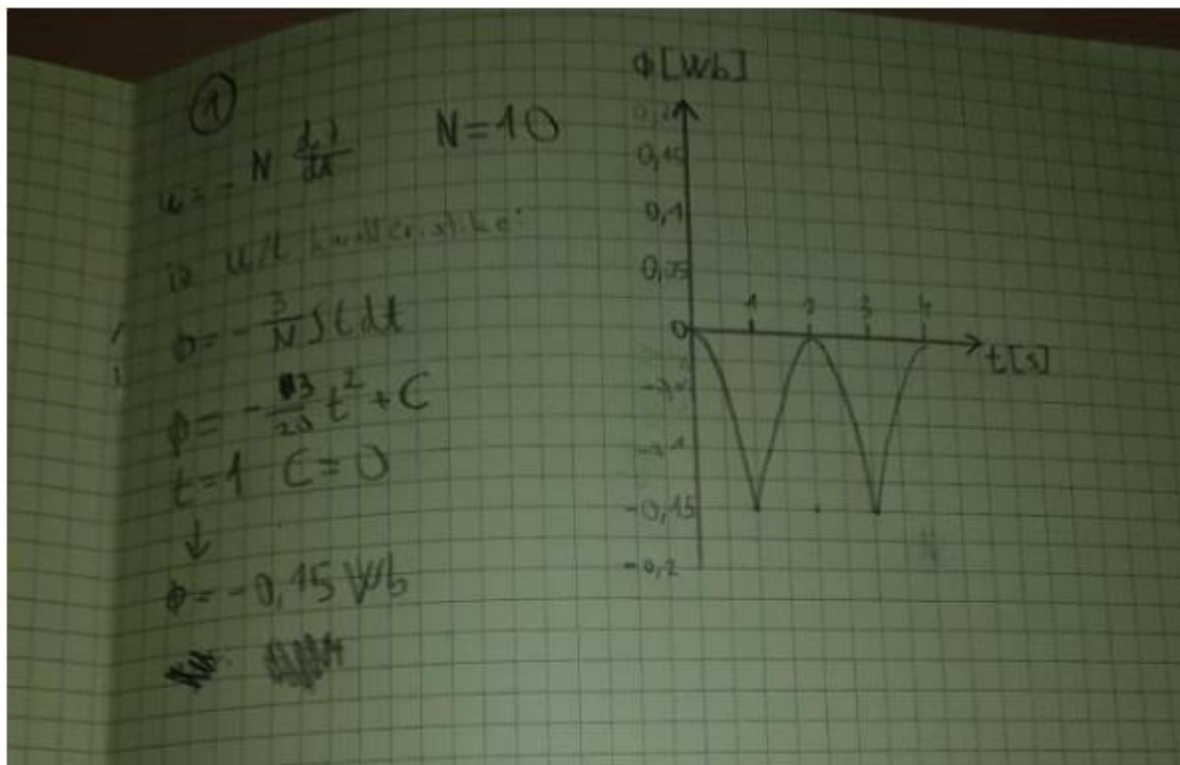 1
u = - N dϕ/dt N = 10
iz u/t karakteristike:
ϕ = - 3/N ∫ t dt
ϕ = - 3/20 t² + C
t = 1 C = 0
↓
ϕ = - 0,15 Wb
ϕ [Wb]
0,2
0,15
0,1
0,05
0
-0,1
-0,15
-0,2
1 2 3 4
t[s]